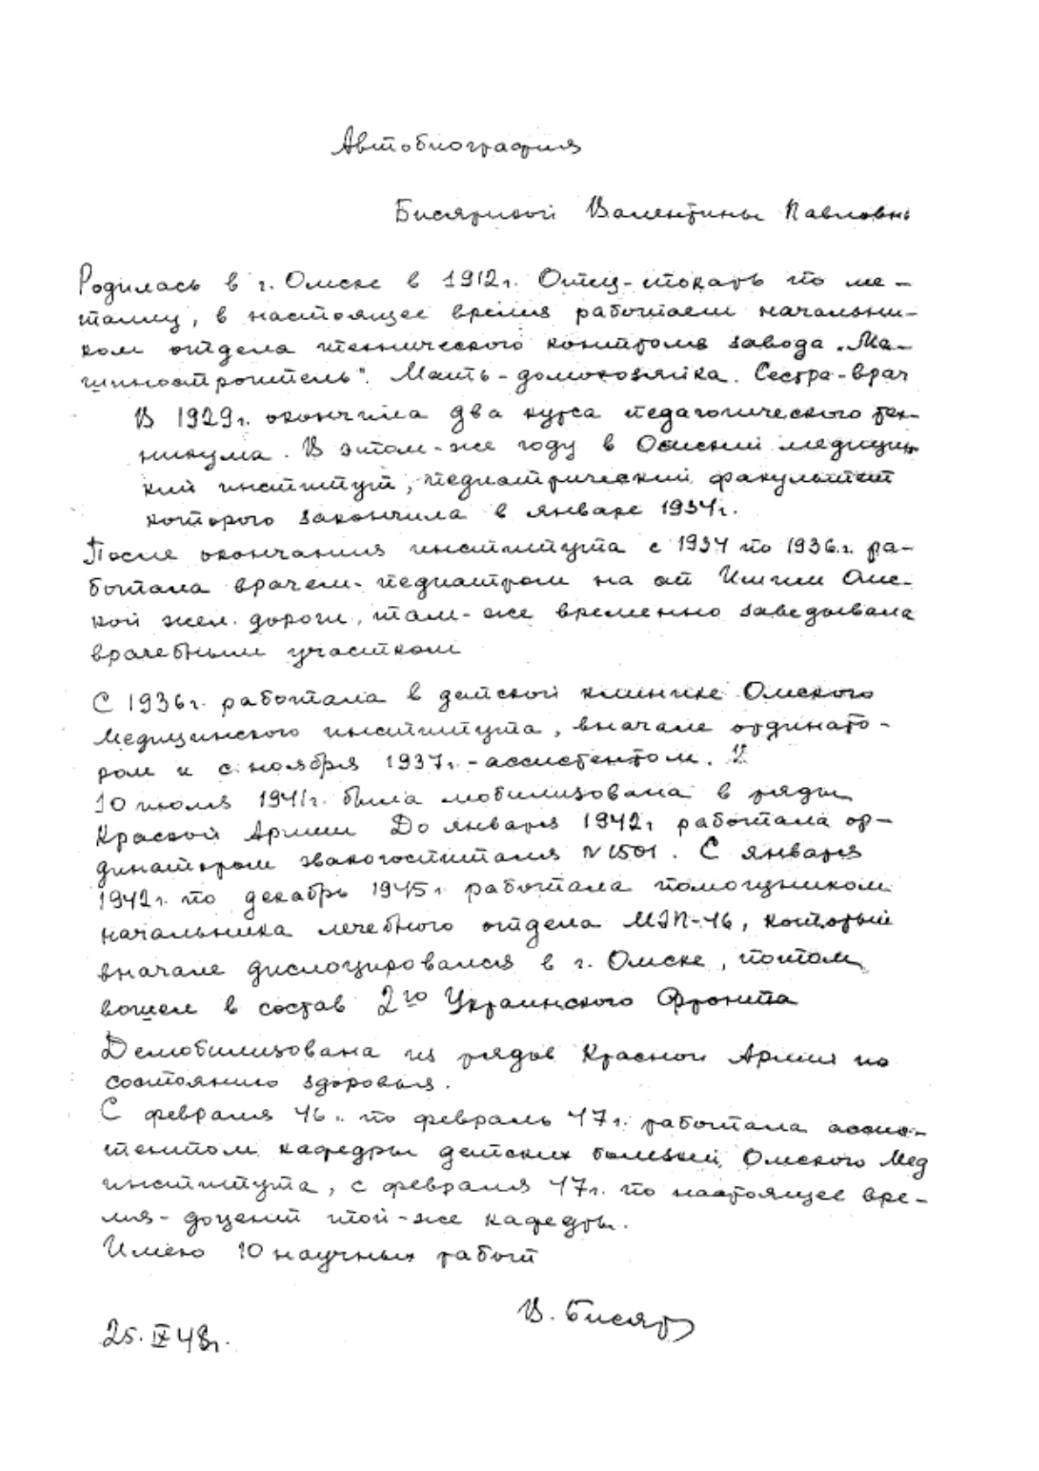 Автобиография
Бисяриной Валентины Павловны
Родилась в г. Омске в 1912г. Отец-токарь по ме-
таллу, в настоящее время работает начальни-
ком отдела технического контроля завода „Ма-
шиностроитель". Мать-домохозяйка. Сестра-врач
В 1929г. окончила два курса педагогического тех-
никума. В этом-же году в Омский медицин
кий институт, педиатрический факультет
которого закончила в январе 1934г.
После окончания института с 1934 по 1936.г. ра-
ботала врачем-педиатром на ст Ишим Омс-
кой жел. дороги, там-же временно заведовала
врачебным участком
С 1936г. работала в детской клинике Омского
Медицинского института, вначале ордината-
ром и с ноября 1937г.-ассистентом.
10 июля 1941г. была мобилизована в ряды
Красной Армии До января 1942г работала ор-
динатором эвакогоспиталя №1501. С января
1942г. по декабрь 1945г работала помощником
начальника лечебного отдела МЭП-46, который
вначале дислоцировался в г. Омске, потом
вошел в состав 2го Украинского Фронта
Демобилизована из рядов Красной Армии по
состоянию здоровья.
С февраля 46г. по февраль 47г. работала ассис-
тентом кафедры детских болезней Омского Мед
института, с февраля 47г. по настоящее вре-
мя-доцент той-же кафедры.
Имею 10 научных работ
В. Бисяр
25. IX 48г.